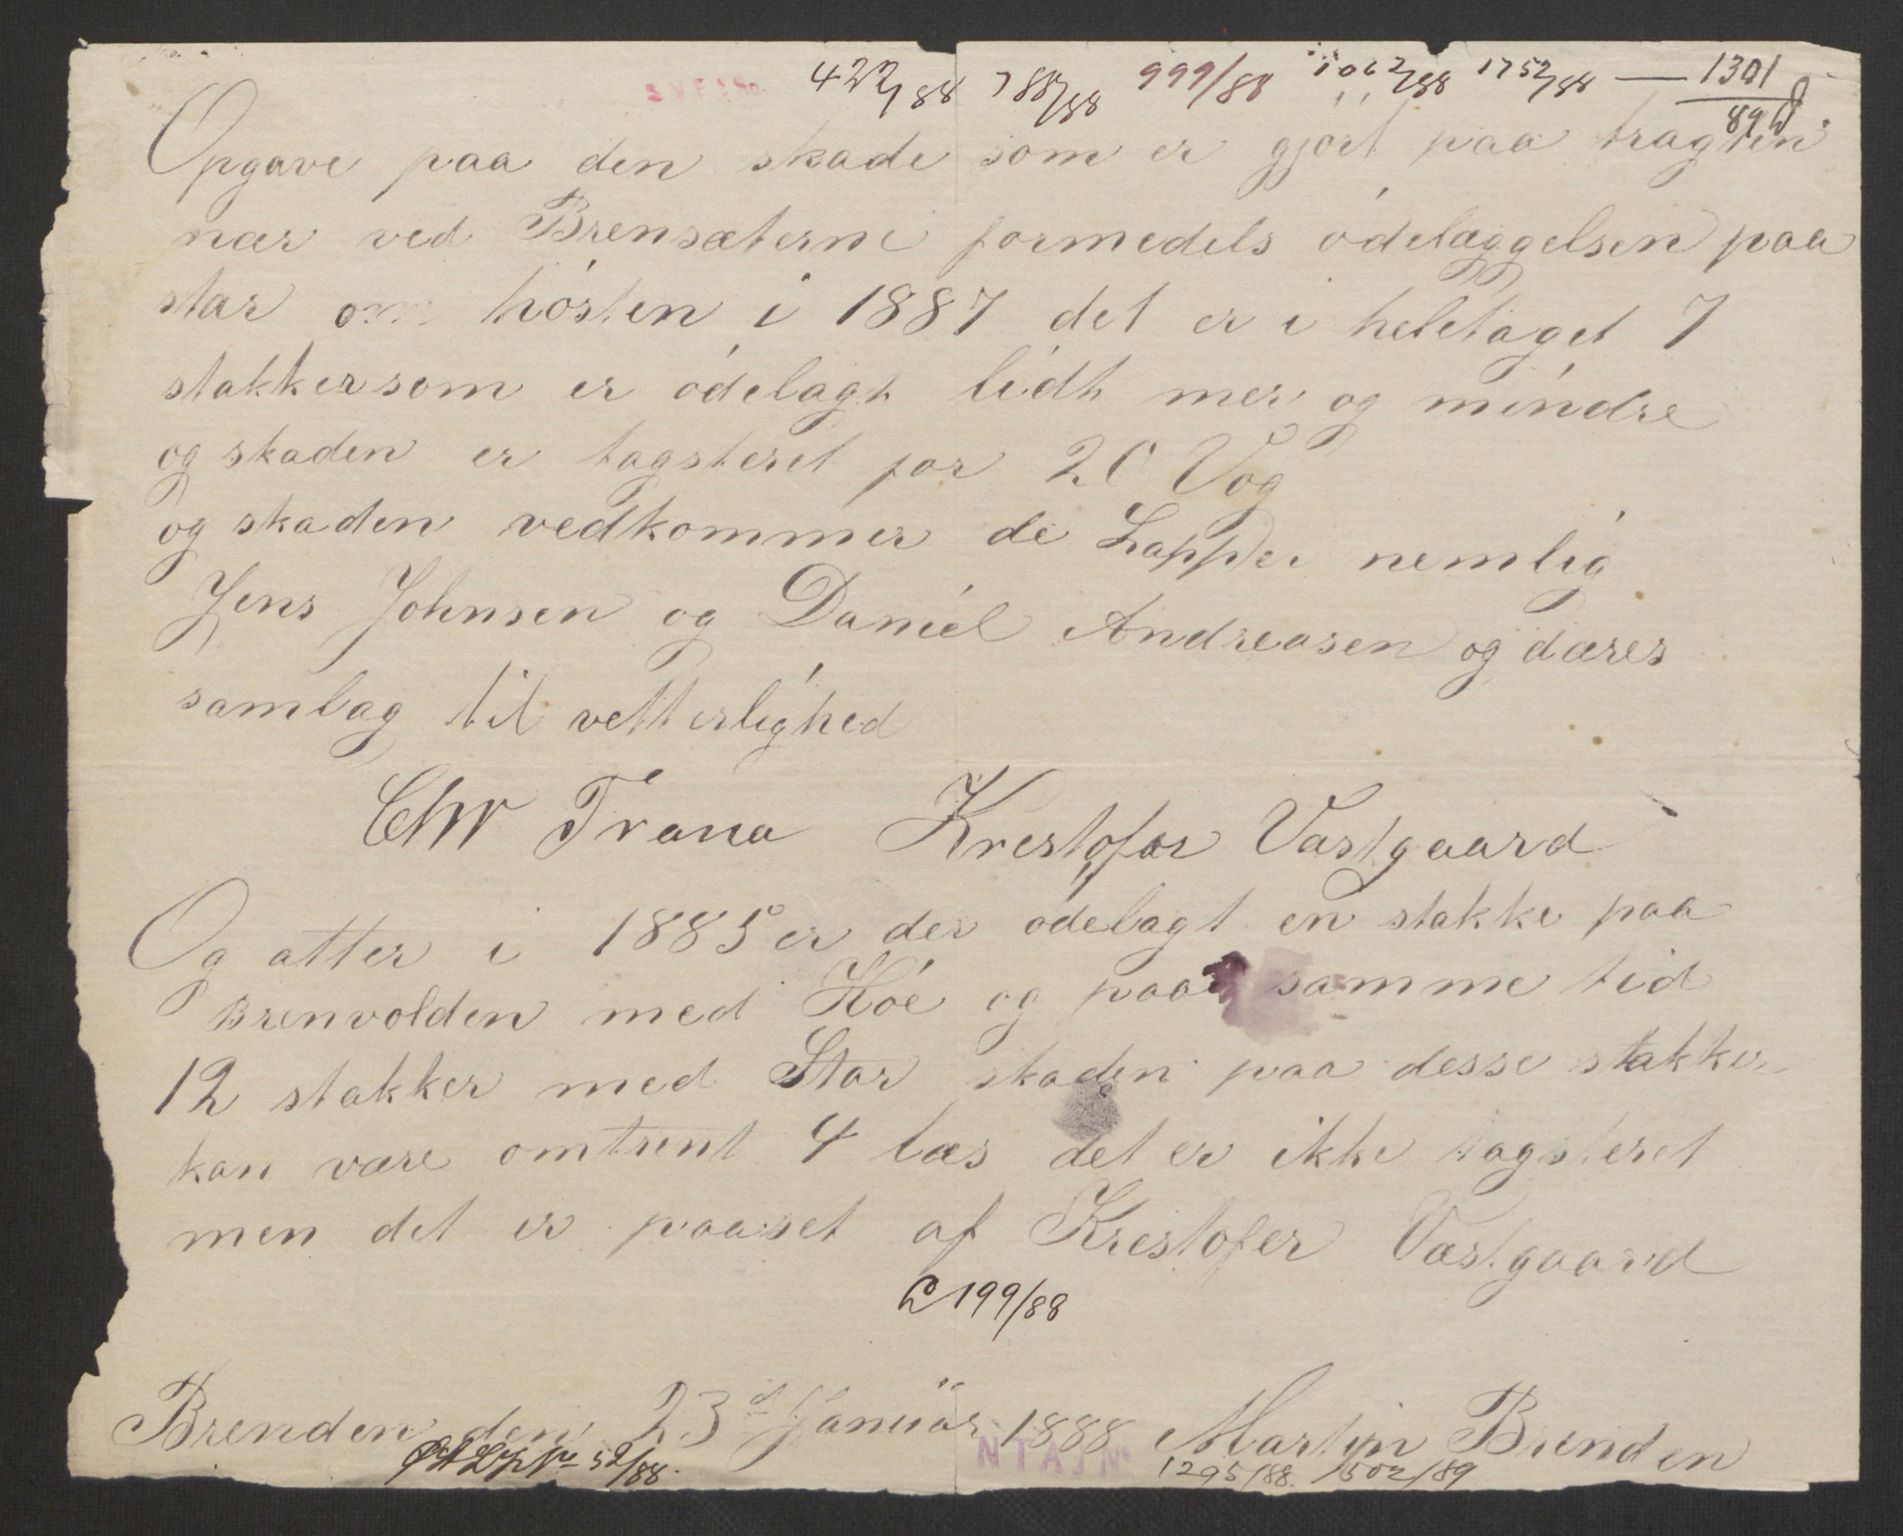 422/88 788/88 999/88 1062/88 1752/88 — 1301
89
Opgave paa den skade som er gjort paa tragten
nær ved Brensæterne formedels ódelæggelsen paa
star om hósten i 1887 det er i heletaget 7
stakker som er ódelagt lidt mer og mindre
og skaden er tagsteret for 20 Vog
og skaden vedkommer de Lapper nemlig
Jens Johnsen og Daniel Andreasen og dæres
samlag til vetterlighed
Chr Trana Krestofer Vastgaard
Og atter i 1885 er der ódelagt en stakke paa
Brenvolden med Hóe og paa samme tid
12 stakker med Star skaden paa desse stakker
kan være omtrent 4 læs det er ikke tagsteret
men det er paaset af Krestofer Vastgaard
199/88
Brenden den 23d Januar 1888 Martin Brenden
52/88. NTAJN 1295/88. 1502/89